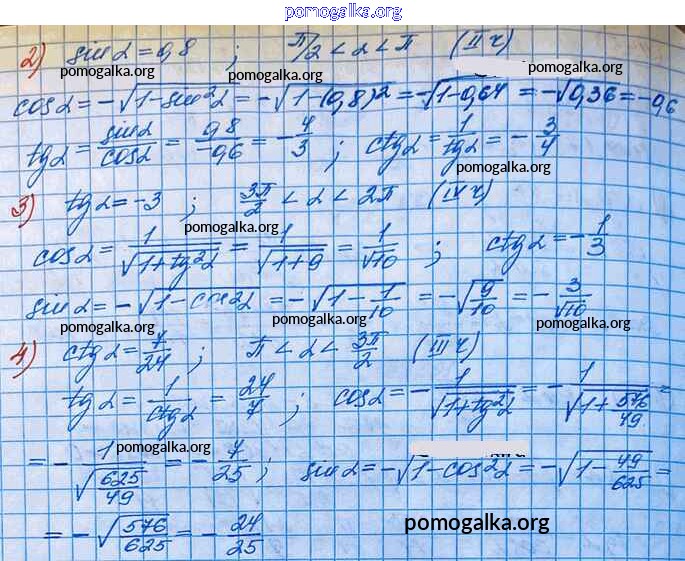 pomogalka.org
2) sin α = 0,8 ; π/2 < α < π (II ч)
pomogalka.org pomogalka.org
cos α = -√(1-sin²α) = -√(1-(0,8)²) = -√(1-0,64) = -√0,36 = -0,6
tg α = sin α / cos α = 0,8 / -0,6 = -4/3 ; ctg α = 1/tg α = -3/4
pomogalka.org
3) tg α = -3 ; 3π/2 < α < 2π (IV ч)
pomogalka.org
cos α = 1/√(1+tg²α) = 1/√(1+9) = 1/√10 ; ctg α = -1/3
sin α = -√(1-cos²α) = -√(1-1/10) = -√(9/10) = -3/√10
pomogalka.org pomogalka.org pomogalka.org
4) ctg α = 7/24 ; π < α < 3π/2 (III ч)
tg α = 1/ctg α = 24/7 ; cos α = -1/√(1+tg²α) = -1/√(1+576/49) =
pomogalka.org
= -1/√(625/49) = -7/25 ; sin α = -√(1-cos²α) = -√(1-49/625) =
= -√(576/625) = -24/25
pomogalka.org